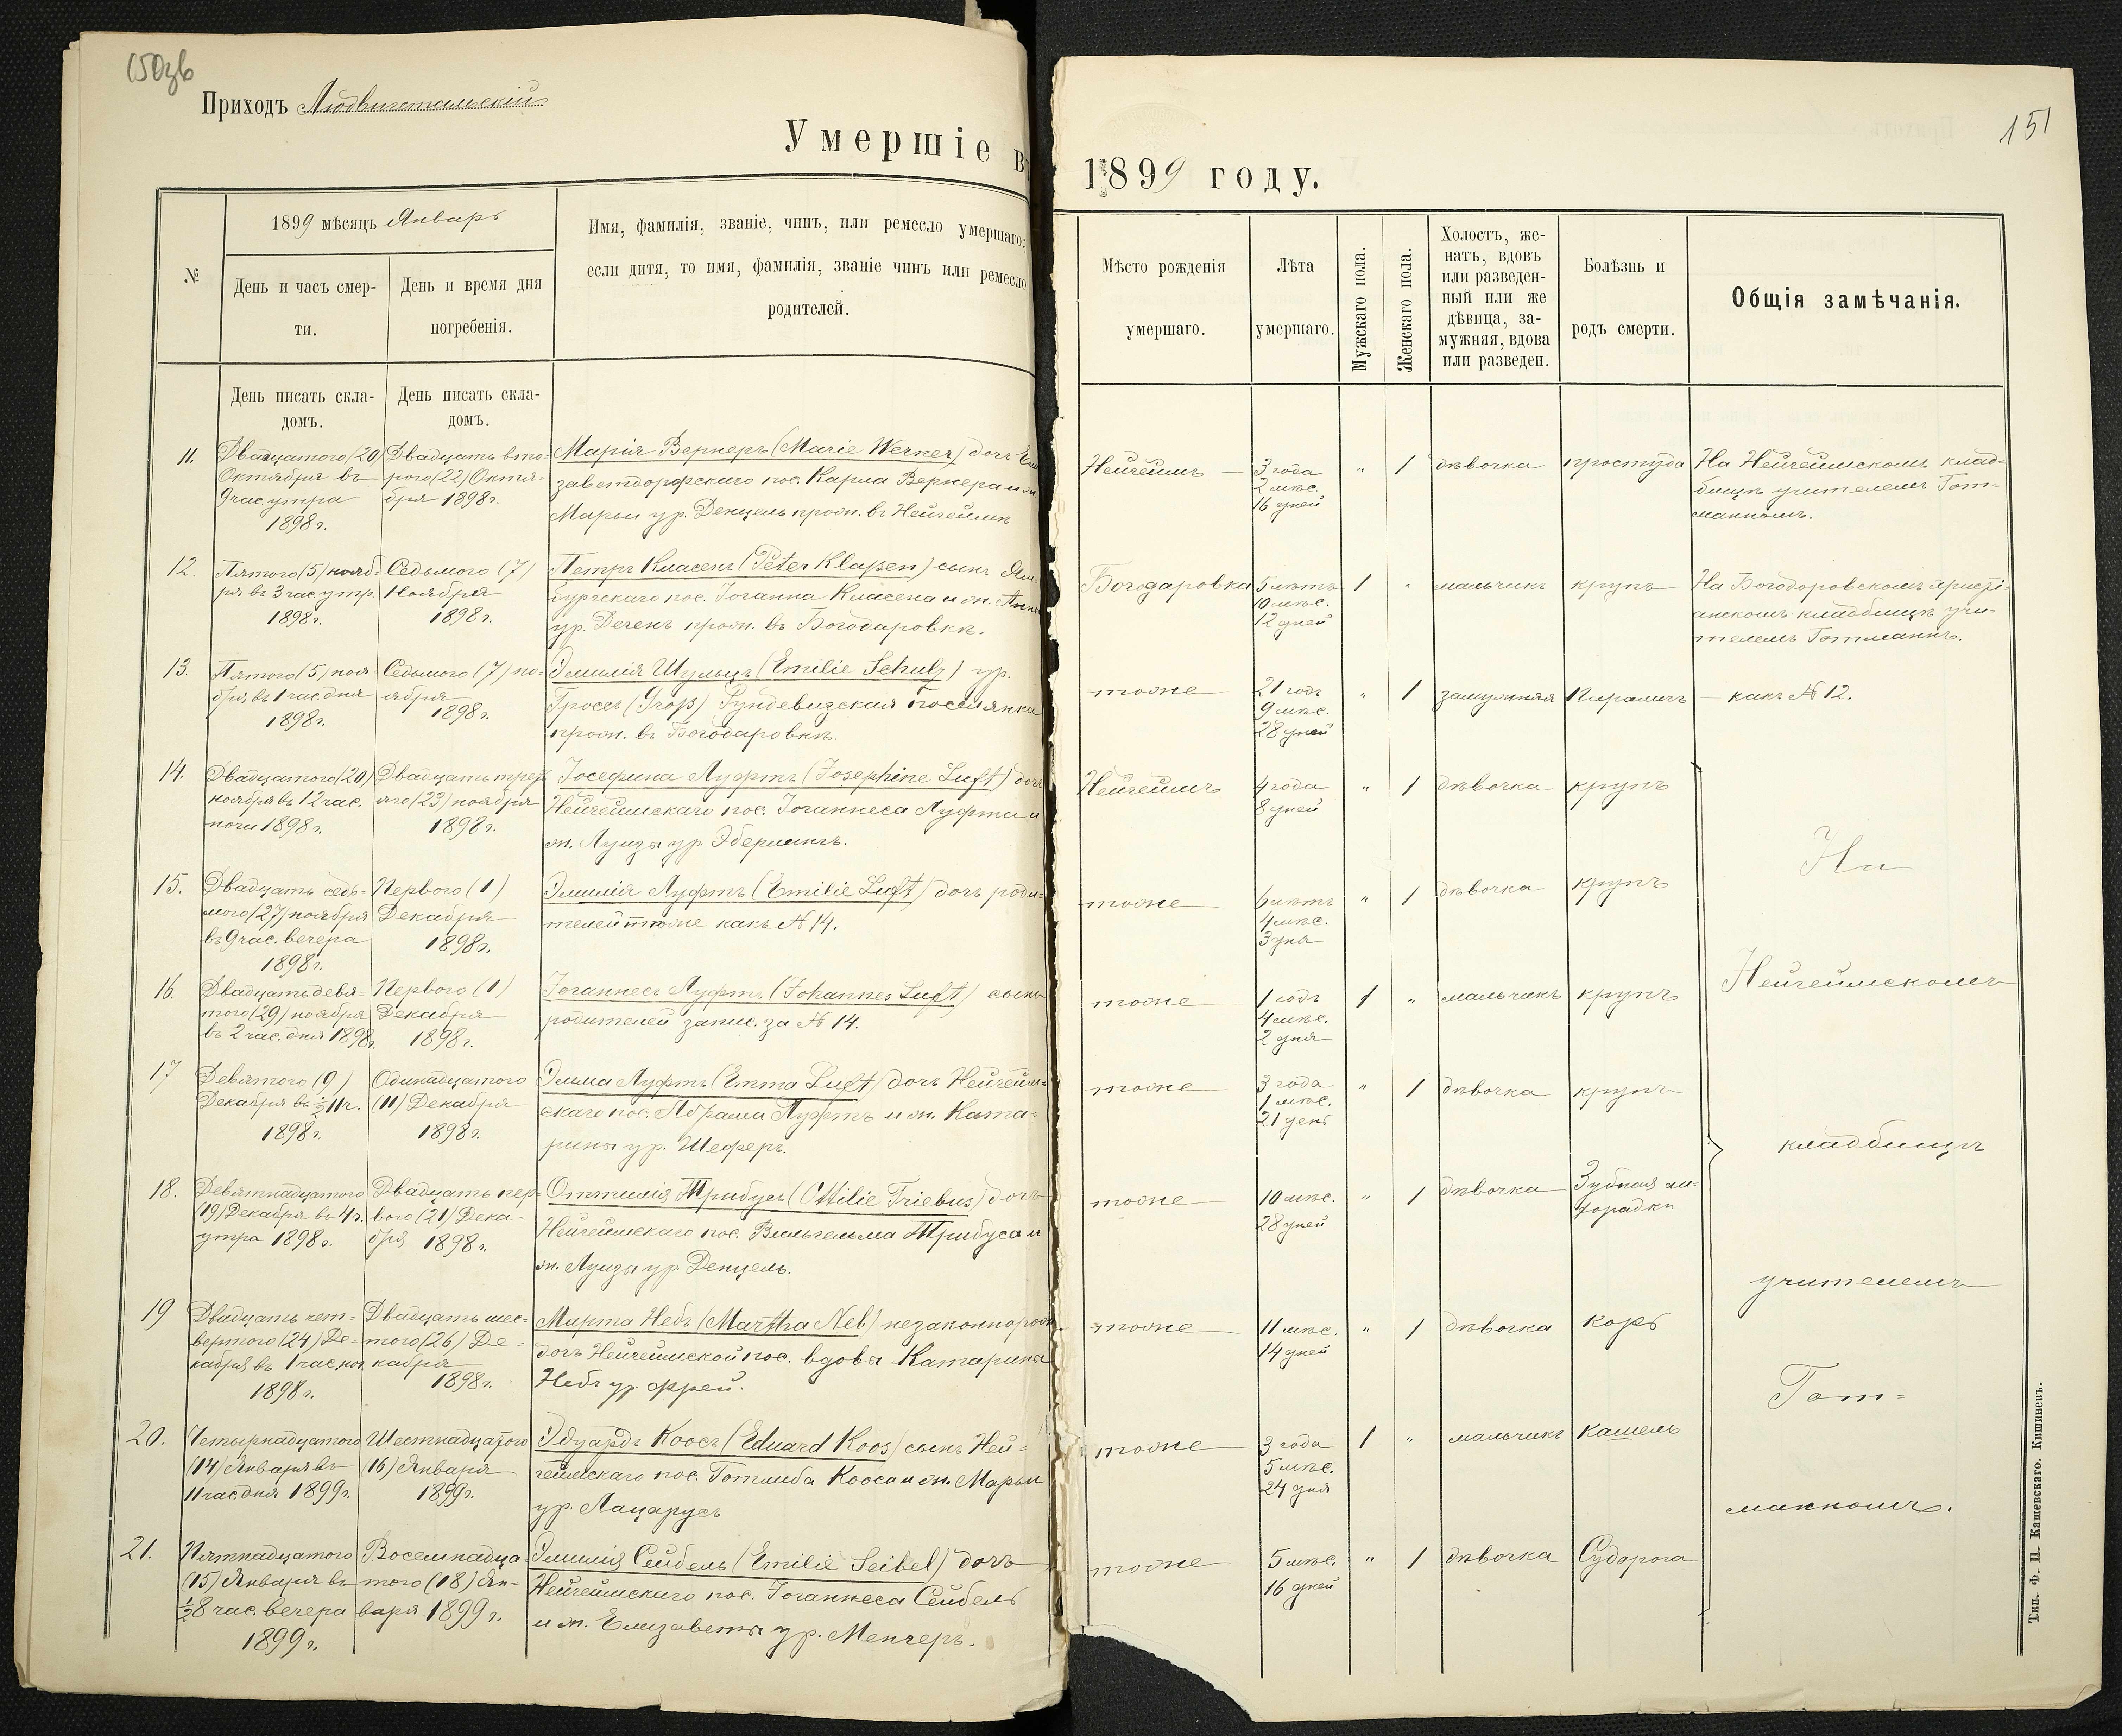 150зв
Приходъ Людвигстальскій
Умершіе въ
1899 году.
151
№
1899 мѣсяцъ Январь
День и часъ смер-
ти.
День и время дня
погребенія.
Имя, фамилія, званіе, чинъ, или ремесло умершаго:
если дитя, то имя, фамилія, званіе чинъ или ремесло
родителей.
Мѣсто рожденія
умершаго.
Лѣта
умершаго.
Мужскаго пола.
Женскаго пола.
Холостъ, же-
натъ, вдовъ
или разведен-
ный или же
дѣвица, за-
мужняя, вдова
или разведен.
Болѣзнь и
родъ смерти.
Общія замѣчанія.
День писать скла-
домъ.
День писать скла-
домъ.
11.
Двадцатого (20)
Октября въ
9 час. утра
1898 г.
Двадцать вто-
рого (22) Октя-
бря 1898 г.
Марія Вернеръ (Marie Werner) дочь Ели
заветдорфскаго пос. Карла Вернера и ж.
Марьи ур. Денцель прож. въ Нейгеймѣ
Нейгеймъ
3 года
2 мѣс.
16 дней
" 1 дѣвочка
простуда
На Нейгеймскомъ клад-
бищѣ учителемъ Гот-
манномъ.
12.
Пятого (5) нояб-
ря въ 3 час. утр.
1898 г.
Седьмого (7)
Ноября
1898 г.
Петръ Класенъ (Peter Klaßen) сынъ Ям-
бургскаго пос. Іоганна Класена и ж. Анны
ур. Дегенъ прож. въ Богодаровкѣ.
Богодаровка
5 лѣтъ
10 мѣс.
12 дней
1 " мальчикъ
крупъ
На Богодоровскомъ христі-
анскомъ кладбищѣ учи-
телемъ Готманнъ.
13.
Пятого (5) ноя-
бря въ 1 час. дня
1898 г.
Седьмого (7) но-
ября
1898 г.
Эмилія Шульцъ (Emilie Schulz) ур.
Гроссъ (Groß) Рундевизская поселянка
прож. въ Богодаровкѣ.
тоже
21 годъ
9 мѣс.
28 дней
" 1 замужняя
Параличъ
какъ № 12.
14.
Двадцатого (20)
ноября въ 12 час.
ночи 1898 г.
Двадцать треть
яго (23) ноября
1898 г.
Іосефина Луфтъ (Josephine Luft) дочь
Нейгеймскаго пос. Іоганнеса Луфта и
ж. Луизы ур. Эберманъ.
Нейгеймъ
4 года
8 дней
" 1 дѣвочка
крупъ
15.
Двадцать седь-
мого (27) ноября
въ 9 час. вечера
1898 г.
Перваго (1)
Декабря
1898 г.
Эмилія Луфтъ (Emilie Luft) дочь роди-
телей тѣхже какъ № 14.
тоже
6 лѣтъ
4 мѣс.
3 дня
" 1 дѣвочка
крупъ
16.
Двадцать девя-
того (29) ноября
въ 2 час. дня 1898 г.
Перваго (1)
Декабря
1898 г.
Іоганнесъ Луфтъ (Johannes Luft) сынъ
родителей запис. за № 14.
тоже
1 годъ
4 мѣс.
2 дня
1 " мальчикъ
крупъ
17
Девятого (9)
Декабря въ ½11 ч.
1898 г.
Одинадцатого
(11) Декабря
1898 г.
Эмма Луфтъ (Emma Luft) дочь Нейгейм-
скаго пос. Абрама Луфтъ и ж. Ката-
рины ур. Шеферъ.
тоже
3 года
1 мѣс.
21 день
" 1 дѣвочка
крупъ
18.
Девятнадцатого
(19) Декабря въ 4 ч.
утра 1898 г.
Двадцать пер-
вого (21) Дека-
бря 1898 г.
Оттилія Трибусъ (Ottilie Triebus) дочь
Нейгеймскаго пос. Вильгельма Трибуса и
ж. Луизы ур. Денцель.
тоже
10 мѣс.
28 дней
" 1 дѣвочка
Зубная ли-
хорадки
19
Двадцать чет-
вертого (24) Де-
кабря въ 1 час. ноч
1898 г.
Двадцать шес-
того (26) Де-
кабря
1898 г.
Марта Небъ (Martha Neb) незаконнорож
дочь Нейгеймской пос. вдовы Катарины
Небъ ур. Фрей.
тоже
11 мѣс.
14 дней
" 1 дѣвочка
Корь
20.
Четырнадцатого
(14) Января въ
11 час. дня 1899 г.
Шестнадцатого
(16) Января
1899 г.
Эдуардъ Коосъ (Eduard Koos) сынъ Ней-
геймскаго пос. Готлиба Кооса и ж. Марьи
ур. Лацарусъ
тоже
3 года
5 мѣс.
24 дня
1 " мальчикъ
Кашель
21.
Пятнадцатого
(15) Января въ
½8 час. вечера
1899 г.
Восемнадца-
того (18) Ян-
варя 1899 г.
Эмилія Сейбель (Emilie Seibel) дочь
Нейгеймскаго пос. Іоганнеса Сейбель
и ж. Елизаветы ур. Менгеръ.
тоже
5 мѣс.
16 дней
" 1 дѣвочка
Судорога
На
Нейгеймскомъ
кладбищѣ
учителемъ
Гот-
манномъ.
Тип. Ф. П. Кашевскаго. Кишиневъ.